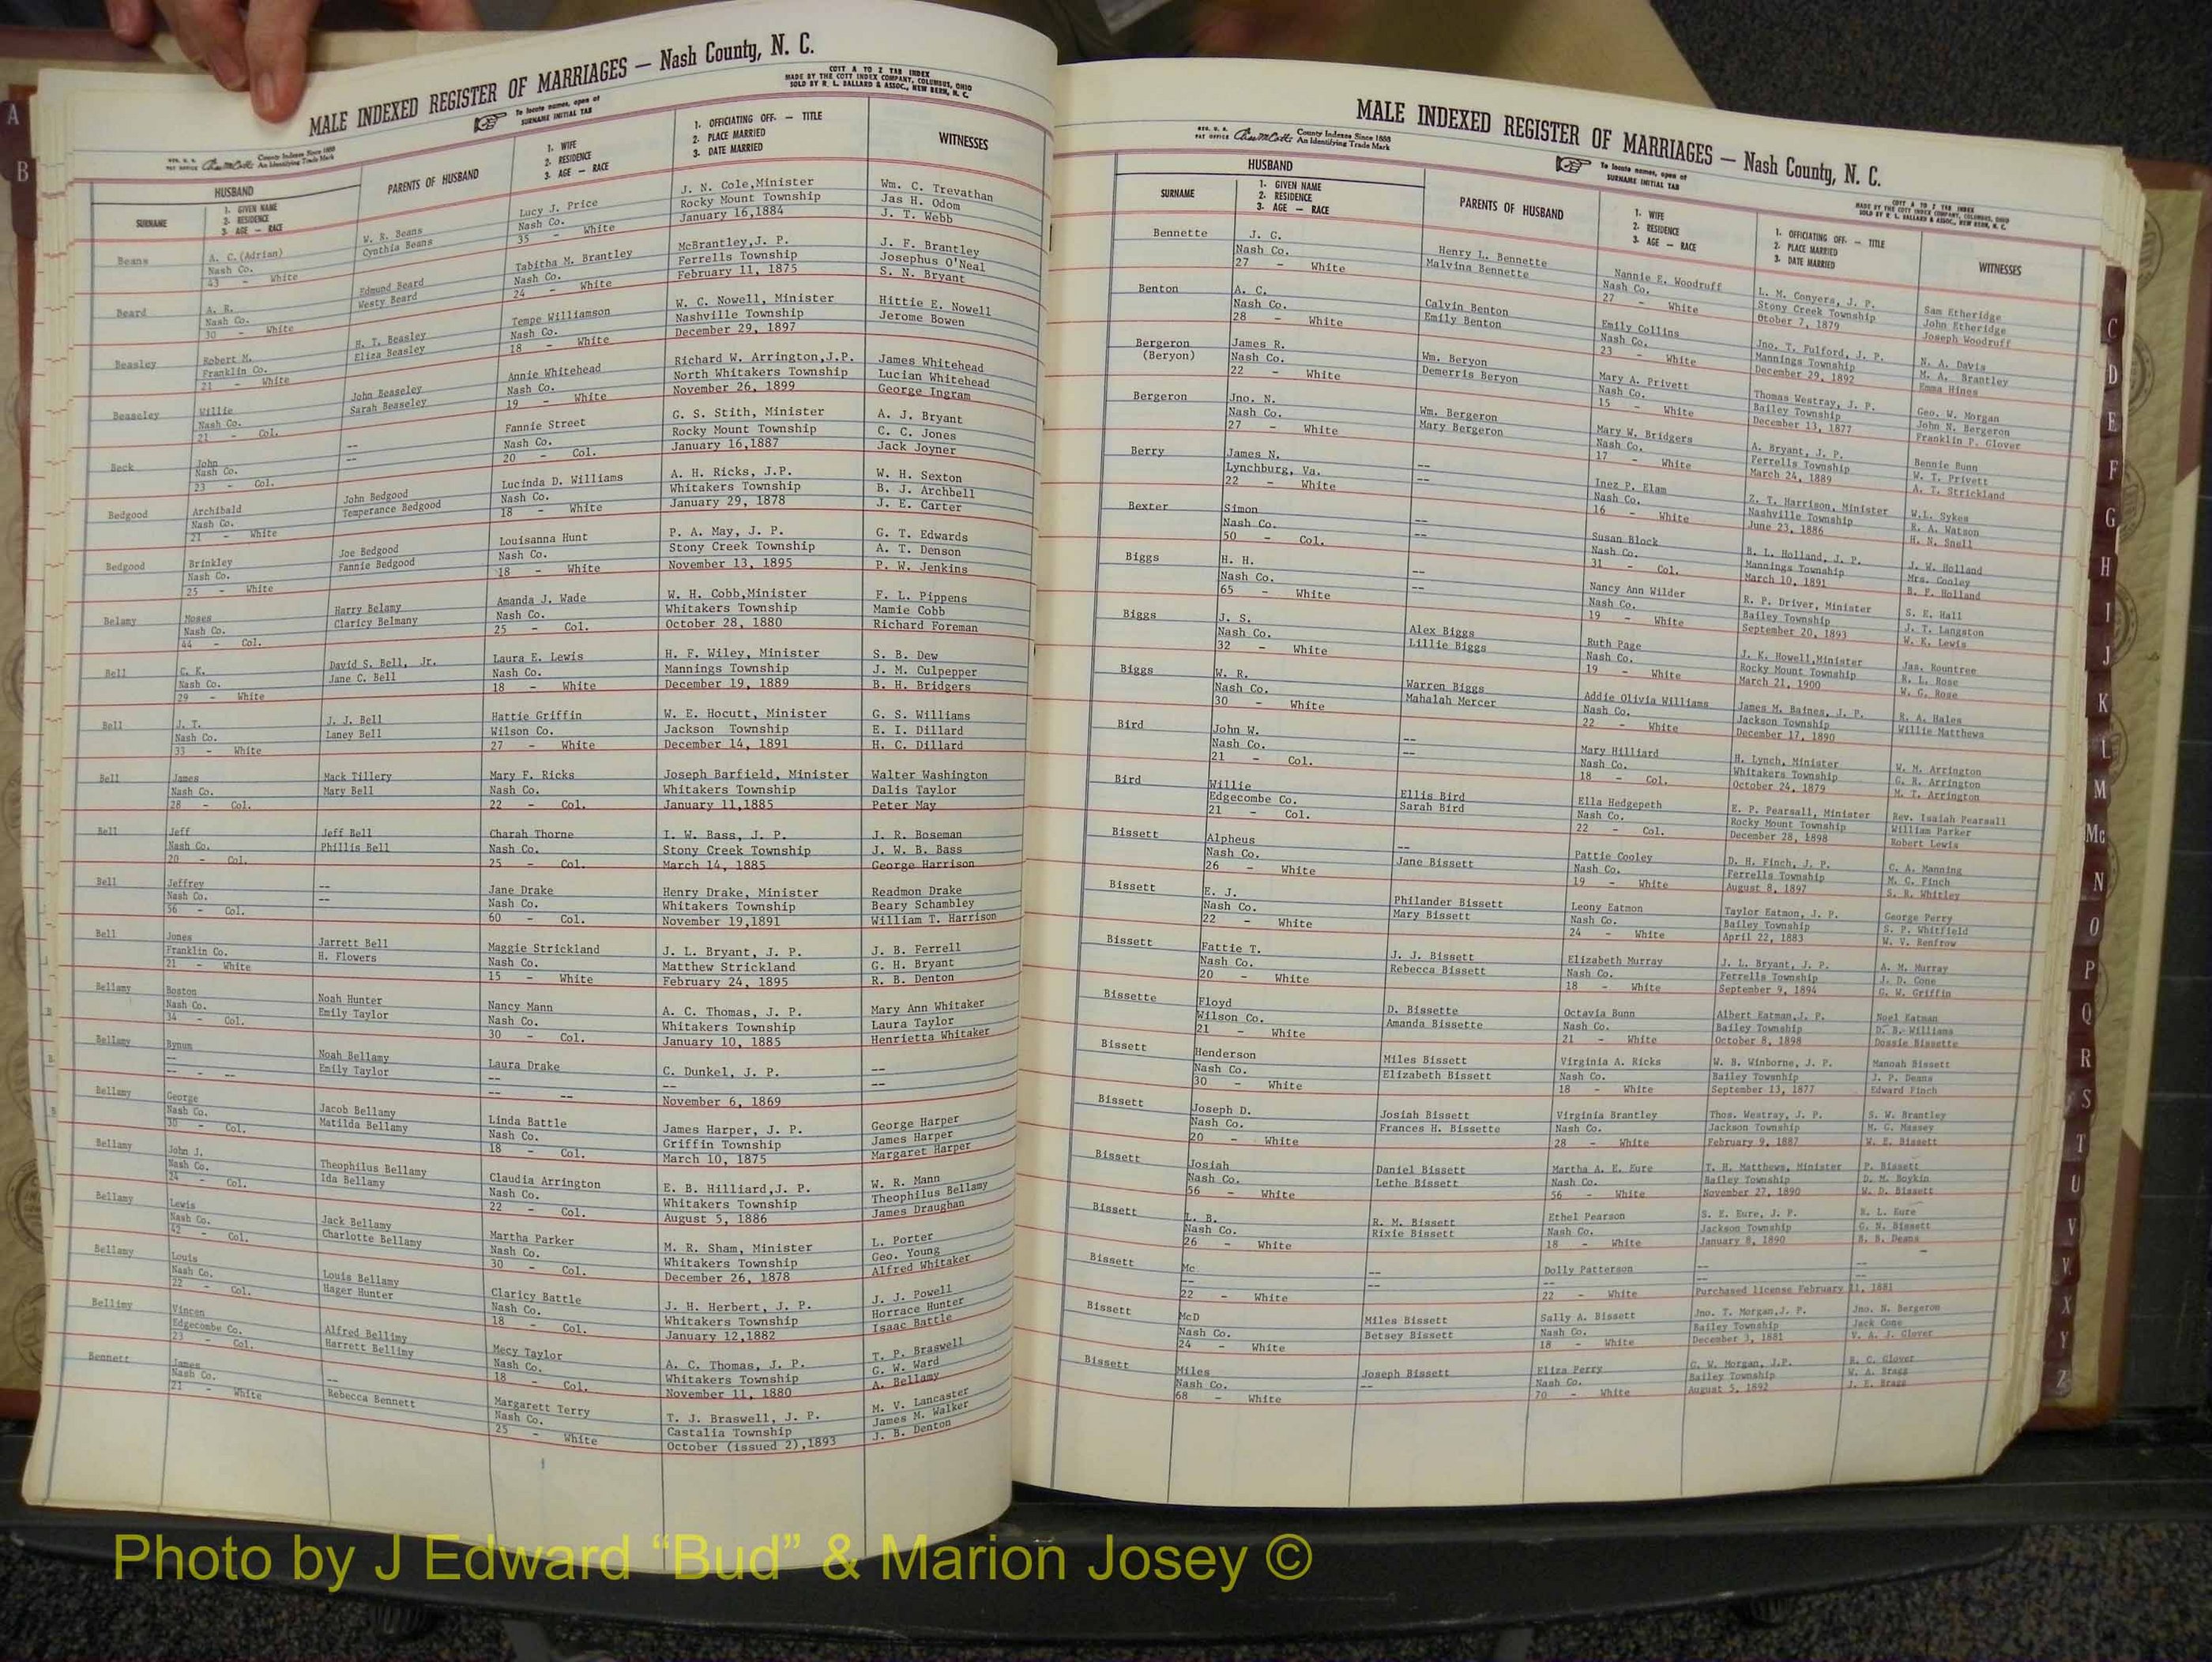 A
B
MALE INDEXED REGISTER OF MARRIAGES — Nash County, N. C.
To locate names, open at
SURNAME INITIAL TAB
COTT A TO Z TAB INDEX
MADE BY THE COTT INDEX COMPANY, COLUMBUS, OHIO
SOLD BY R. L. BALLARD & ASSOC., NEW BERN, N. C.
County Indexes Since 1888
An Identifying Trade Mark
HUSBAND
SURNAME
1. GIVEN NAME
2. RESIDENCE
3. AGE — RACE
PARENTS OF HUSBAND
1. WIFE
2. RESIDENCE
3. AGE — RACE
1. OFFICIATING OFF. — TITLE
2. PLACE MARRIED
3. DATE MARRIED
WITNESSES
Beans A. C.(Adrian) W. R. Beans Lucy J. Price J. N. Cole,Minister Wm. C. Trevathan
Nash Co. Cynthia Beans Nash Co. Rocky Mount Township Jas H. Odom
43 - White 35 - White January 16,1884 J. T. Webb
Beard A. R. Edmund Beard Tabitha M. Brantley McBrantley,J. P. J. F. Brantley
Nash Co. Westy Beard Nash Co. Ferrells Township Josephus O'Neal
30 - White 24 - White February 11, 1875 S. N. Bryant
Beasley Robert M. H. T. Beasley Tempe Williamson W. C. Nowell, Minister Hittie E. Nowell
Franklin Co. Eliza Beasley Nash Co. Nashville Township Jerome Bowen
21 - White 18 - White December 29, 1897
Beaseley Willie John Beaseley Annie Whitehead Richard W. Arrington,J.P. James Whitehead
Nash Co. Sarah Beaseley Nash Co. North Whitakers Township Lucian Whitehead
21 - Col. 19 - White November 26, 1899 George Ingram
Beck John -- Fannie Street G. S. Stith, Minister A. J. Bryant
Nash Co. -- Nash Co. Rocky Mount Township C. C. Jones
23 - Col. 20 - Col. January 16,1887 Jack Joyner
Bedgood Archibald John Bedgood Lucinda D. Williams A. H. Ricks, J.P. W. H. Sexton
Nash Co. Temperance Bedgood Nash Co. Whitakers Township B. J. Archbell
21 - White 18 - White January 29, 1878 J. E. Carter
Bedgood Brinkley Joe Bedgood Louisanna Hunt P. A. May, J. P. G. T. Edwards
Nash Co. Fannie Bedgood Nash Co. Stony Creek Township A. T. Denson
25 - White 18 - White November 13, 1895 P. W. Jenkins
Belamy Moses Harry Belamy Amanda J. Wade W. H. Cobb,Minister F. L. Pippens
Nash Co. Claricy Belmany Nash Co. Whitakers Township Mamie Cobb
44 - Col. 25 - Col. October 28, 1880 Richard Foreman
Bell C. K. David S. Bell, Jr. Laura E. Lewis H. F. Wiley, Minister S. B. Dew
Nash Co. Jane C. Bell Nash Co. Mannings Township J. M. Culpepper
29 - White 18 - White December 19, 1889 B. H. Bridgers
Bell J. T. J. J. Bell Hattie Griffin W. E. Hocutt, Minister G. S. Williams
Nash Co. Laney Bell Wilson Co. Jackson Township E. I. Dillard
33 - White 27 - White December 14, 1891 H. C. Dillard
Bell James Mack Tillery Mary F. Ricks Joseph Barfield, Minister Walter Washington
Nash Co. Mary Bell Nash Co. Whitakers Township Dalis Taylor
28 - Col. 22 - Col. January 11,1885 Peter May
Bell Jeff Jeff Bell Charah Thorne I. W. Bass, J. P. J. R. Boseman
Nash Co. Phillis Bell Nash Co. Stony Creek Township J. W. B. Bass
20 - Col. 25 - Col. March 14, 1885 George Harrison
Bell Jeffrey -- Jane Drake Henry Drake, Minister Readmon Drake
Nash Co. -- Nash Co. Whitakers Township Beary Schambley
56 - Col. 60 - Col. November 19,1891 William T. Harrison
Bell Jones Jarrett Bell Maggie Strickland J. L. Bryant, J. P. J. B. Ferrell
Franklin Co. H. Flowers Nash Co. Matthew Strickland G. H. Bryant
21 - White 15 - White February 24, 1895 R. B. Denton
Bellamy Boston Noah Hunter Nancy Mann A. C. Thomas, J. P. Mary Ann Whitaker
Nash Co. Emily Taylor Nash Co. Whitakers Township Laura Taylor
34 - Col. 30 - Col. January 10, 1885 Henrietta Whitaker
Bellamy Bynum Noah Bellamy Laura Drake C. Dunkel, J. P. --
-- Emily Taylor -- -- --
-- - -- -- -- November 6, 1869
Bellamy George Jacob Bellamy Linda Battle James Harper, J. P. George Harper
Nash Co. Matilda Bellamy Nash Co. Griffin Township James Harper
30 - Col. 18 - Col. March 10, 1875 Margaret Harper
Bellamy John J. Theophilus Bellamy Claudia Arrington E. B. Hilliard,J. P. W. R. Mann
Nash Co. Ida Bellamy Nash Co. Whitakers Township Theophilus Bellamy
24 - Col. 22 - Col. August 5, 1886 James Draughan
Bellamy Lewis Jack Bellamy Martha Parker M. R. Sham, Minister L. Porter
Nash Co. Charlotte Bellamy Nash Co. Whitakers Township Geo. Young
42 - Col. 30 - Col. December 26, 1878 Alfred Whitaker
Bellamy Louis Louis Bellamy Claricy Battle J. H. Herbert, J. P. J. J. Powell
Nash Co. Hager Hunter Nash Co. Whitakers Township Horrace Hunter
22 - Col. 18 - Col. January 12,1882 Isaac Battle
Bellimy Vincen Alfred Bellimy Mecy Taylor A. C. Thomas, J. P. T. P. Braswell
Edgecombe Co. Harrett Bellimy Nash Co. Whitakers Township G. W. Ward
23 - Col. 18 - Col. November 11, 1880 A. Bellamy
Bennett James -- Margarett Terry T. J. Braswell, J. P. M. V. Lancaster
Nash Co. Rebecca Bennett Nash Co. Castalia Township James M. Walker
21 - White 25 - White October (issued 2),1893 J. B. Denton
MALE INDEXED REGISTER OF MARRIAGES — Nash County, N. C.
County Indexes Since 1888
An Identifying Trade Mark
To locate names, open at
SURNAME INITIAL TAB
COTT A TO Z TAB INDEX
MADE BY THE COTT INDEX COMPANY, COLUMBUS, OHIO
SOLD BY R. L. BALLARD & ASSOC., NEW BERN, N. C.
HUSBAND
SURNAME
1. GIVEN NAME
2. RESIDENCE
3. AGE — RACE
PARENTS OF HUSBAND
1. WIFE
2. RESIDENCE
3. AGE — RACE
1. OFFICIATING OFF. — TITLE
2. PLACE MARRIED
3. DATE MARRIED
WITNESSES
Bennette J. G. Henry L. Bennette Nannie E. Woodruff L. M. Conyers, J. P. Sam Etheridge
Nash Co. Malvina Bennette Nash Co. Stony Creek Township John Etheridge
27 - White 27 - White Otober 7, 1879 Joseph Woodruff
Benton A. C. Calvin Benton Emily Collins Jno. T. Fulford, J. P. N. A. Davis
Nash Co. Emily Benton Nash Co. Mannings Township M. A. Brantley
28 - White 23 - White December 29, 1892 Emma Hines
Bergeron James R. Wm. Beryon Mary A. Privett Thomas Westray, J. P. Geo. W. Morgan
(Beryon) Nash Co. Demerris Beryon Nash Co. Bailey Township John N. Bergeron
22 - White 15 - White December 13, 1877 Franklin P. Glover
Bergeron Jno. N. Wm. Bergeron Mary W. Bridgers A. Bryant, J. P. Bennie Bunn
Nash Co. Mary Bergeron Nash Co. Ferrells Township W. T. Privett
27 - White 17 - White March 24, 1889 A. T. Strickland
Berry James N. -- Inez P. Elam Z. T. Harrison, Minister W.L. Sykes
Lynchburg, Va. -- Nash Co. Nashville Township R. A. Watson
22 - White 16 - White June 23, 1886 H. N. Snell
Bexter Simon -- Susan Block B. L. Holland, J. P. J. W. Holland
Nash Co. -- Nash Co. Mannings Township Mrs. Conley
50 - Col. 31 - Col. March 10, 1891 B. F. Holland
Biggs H. H. -- Nancy Ann Wilder R. P. Driver, Minister S. E. Hall
Nash Co. -- Nash Co. Bailey Township J. T. Langston
65 - White 19 - White September 20, 1893 W. K. Lewis
Biggs J. S. Alex Biggs Ruth Page J. K. Howell,Minister Jas. Rountree
Nash Co. Lillie Biggs Nash Co. Rocky Mount Township R. L. Rose
32 - White 19 - White March 21, 1900 W. G. Rose
Biggs W. R. Warren Biggs Addie Olivia Williams James M. Baines, J. P. R. A. Hales
Nash Co. Mahalah Mercer Nash Co. Jackson Township Willie Matthews
30 - White 22 - White December 17, 1890
Bird John W. -- Mary Hilliard H. Lynch, Minister W. M. Arrington
Nash Co. -- Nash Co. Whitakers Township G. R. Arrington
21 - Col. 18 - Col. October 24, 1879 M. T. Arrington
Bird Willie Ellis Bird Ella Hedgepeth E. P. Pearsall, Minister Rev. Isaiah Pearsall
Edgecombe Co. Sarah Bird Nash Co. Rocky Mount Township William Parker
21 - Col. 22 - Col. December 28, 1898 Robert Lewis
Bissett Alpheus -- Pattie Cooley D. H. Finch, J. P. C. A. Manning
Nash Co. Jane Bissett Nash Co. Ferrells Township M. C. Finch
26 - White 19 - White August 8, 1897 S. R. Whitley
Bissett E. J. Philander Bissett Leony Eatmon Taylor Eatmon, J. P. George Perry
Nash Co. Mary Bissett Nash Co. Bailey Township S. P. Whitfield
22 - White 24 - White April 22, 1883 W. V. Renfrow
Bissett Fattie T. J. J. Bissett Elizabeth Murray J. L. Bryant, J. P. A. M. Murray
Nash Co. Rebecca Bissett Nash Co. Ferrells Township J. D. Cone
20 - White 18 - White September 9, 1894 G. W. Griffin
Bissette Floyd D. Bissette Octavia Bunn Albert Eatman,J. P. Noel Eatman
Wilson Co. Amanda Bissette Nash Co. Bailey Township D. B. Williams
21 - White 21 - White October 8, 1898 Dossie Bissette
Bissett Henderson Miles Bissett Virginia A. Ricks W. B. Winborne, J. P. Manoah Bissett
Nash Co. Elizabeth Bissett Nash Co. Bailey Township J. P. Deans
30 - White 18 - White September 13, 1877 Edward Finch
Bissett Joseph D. Josiah Bissett Virginia Brantley Thos. Westray, J. P. S. W. Brantley
Nash Co. Frances H. Bissette Nash Co. Jackson Township M. G. Massey
20 - White 28 - White February 9, 1887 W. E. Bissett
Bissett Josiah Daniel Bissett Martha A. E. Eure T. H. Matthews, Minister P. Bissett
Nash Co. Lethe Bissett Nash Co. Bailey Township D. M. Boykin
56 - White 56 - White November 27, 1890 W. D. Bissett
Bissett L. B. R. M. Bissett Ethel Pearson S. E. Eure, J. P. R. L. Eure
Nash Co. Rixie Bissett Nash Co. Jackson Township G. N. Bissett
26 - White 18 - White January 8, 1890 B. B. Deans
Bissett Mc -- Dolly Patterson -- --
-- -- -- -- --
22 - White 22 - White Purchased license February 11, 1881
Bissett McD Miles Bissett Sally A. Bissett Jno. T. Morgan,J. P. Jno. N. Bergeron
Nash Co. Betsey Bissett Nash Co. Bailey Township Jack Cone
24 - White 18 - White December 3, 1881 V. A. J. Glover
Bissett Miles Joseph Bissett Eliza Perry G. W. Morgan, J.P. R. C. Glover
Nash Co. -- Nash Co. Bailey Township W. A. Bragg
68 - White 70 - White August 5, 1892 J. E. Bragg
C
D
E
F
G
H
I
J
K
L
M
Mc
N
O
P
Q
R
S
T
U
V
W
X
Y
Z
Photo by J Edward “Bud” & Marion Josey ©